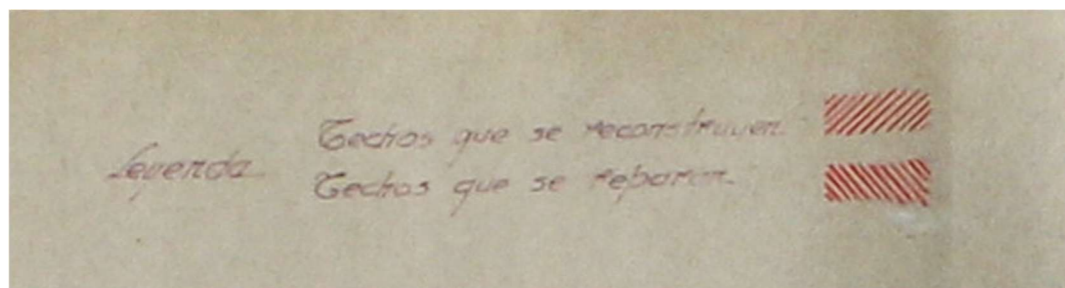 Leyenda
Techos que se reconstruyen.
Techos que se reparan.